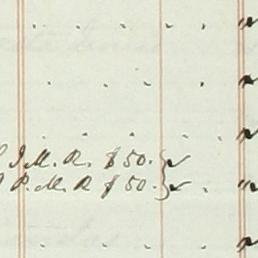 I. M. R. $50.
P. M. R $50.